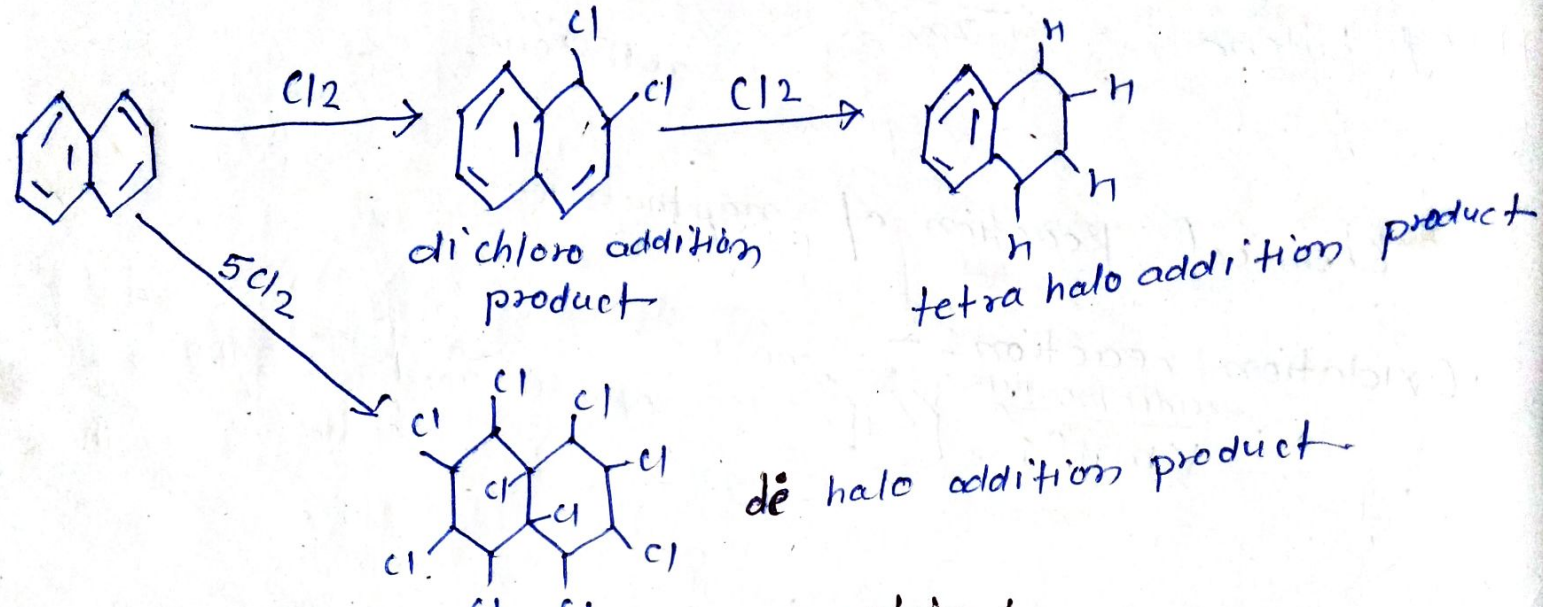 Cl
Cl2
Cl
Cl2
H
H
H
H
di chloro addition
product
tetra halo addition product
5Cl2
Cl
Cl
Cl
Cl
Cl
Cl
Cl
Cl
de halo addition product